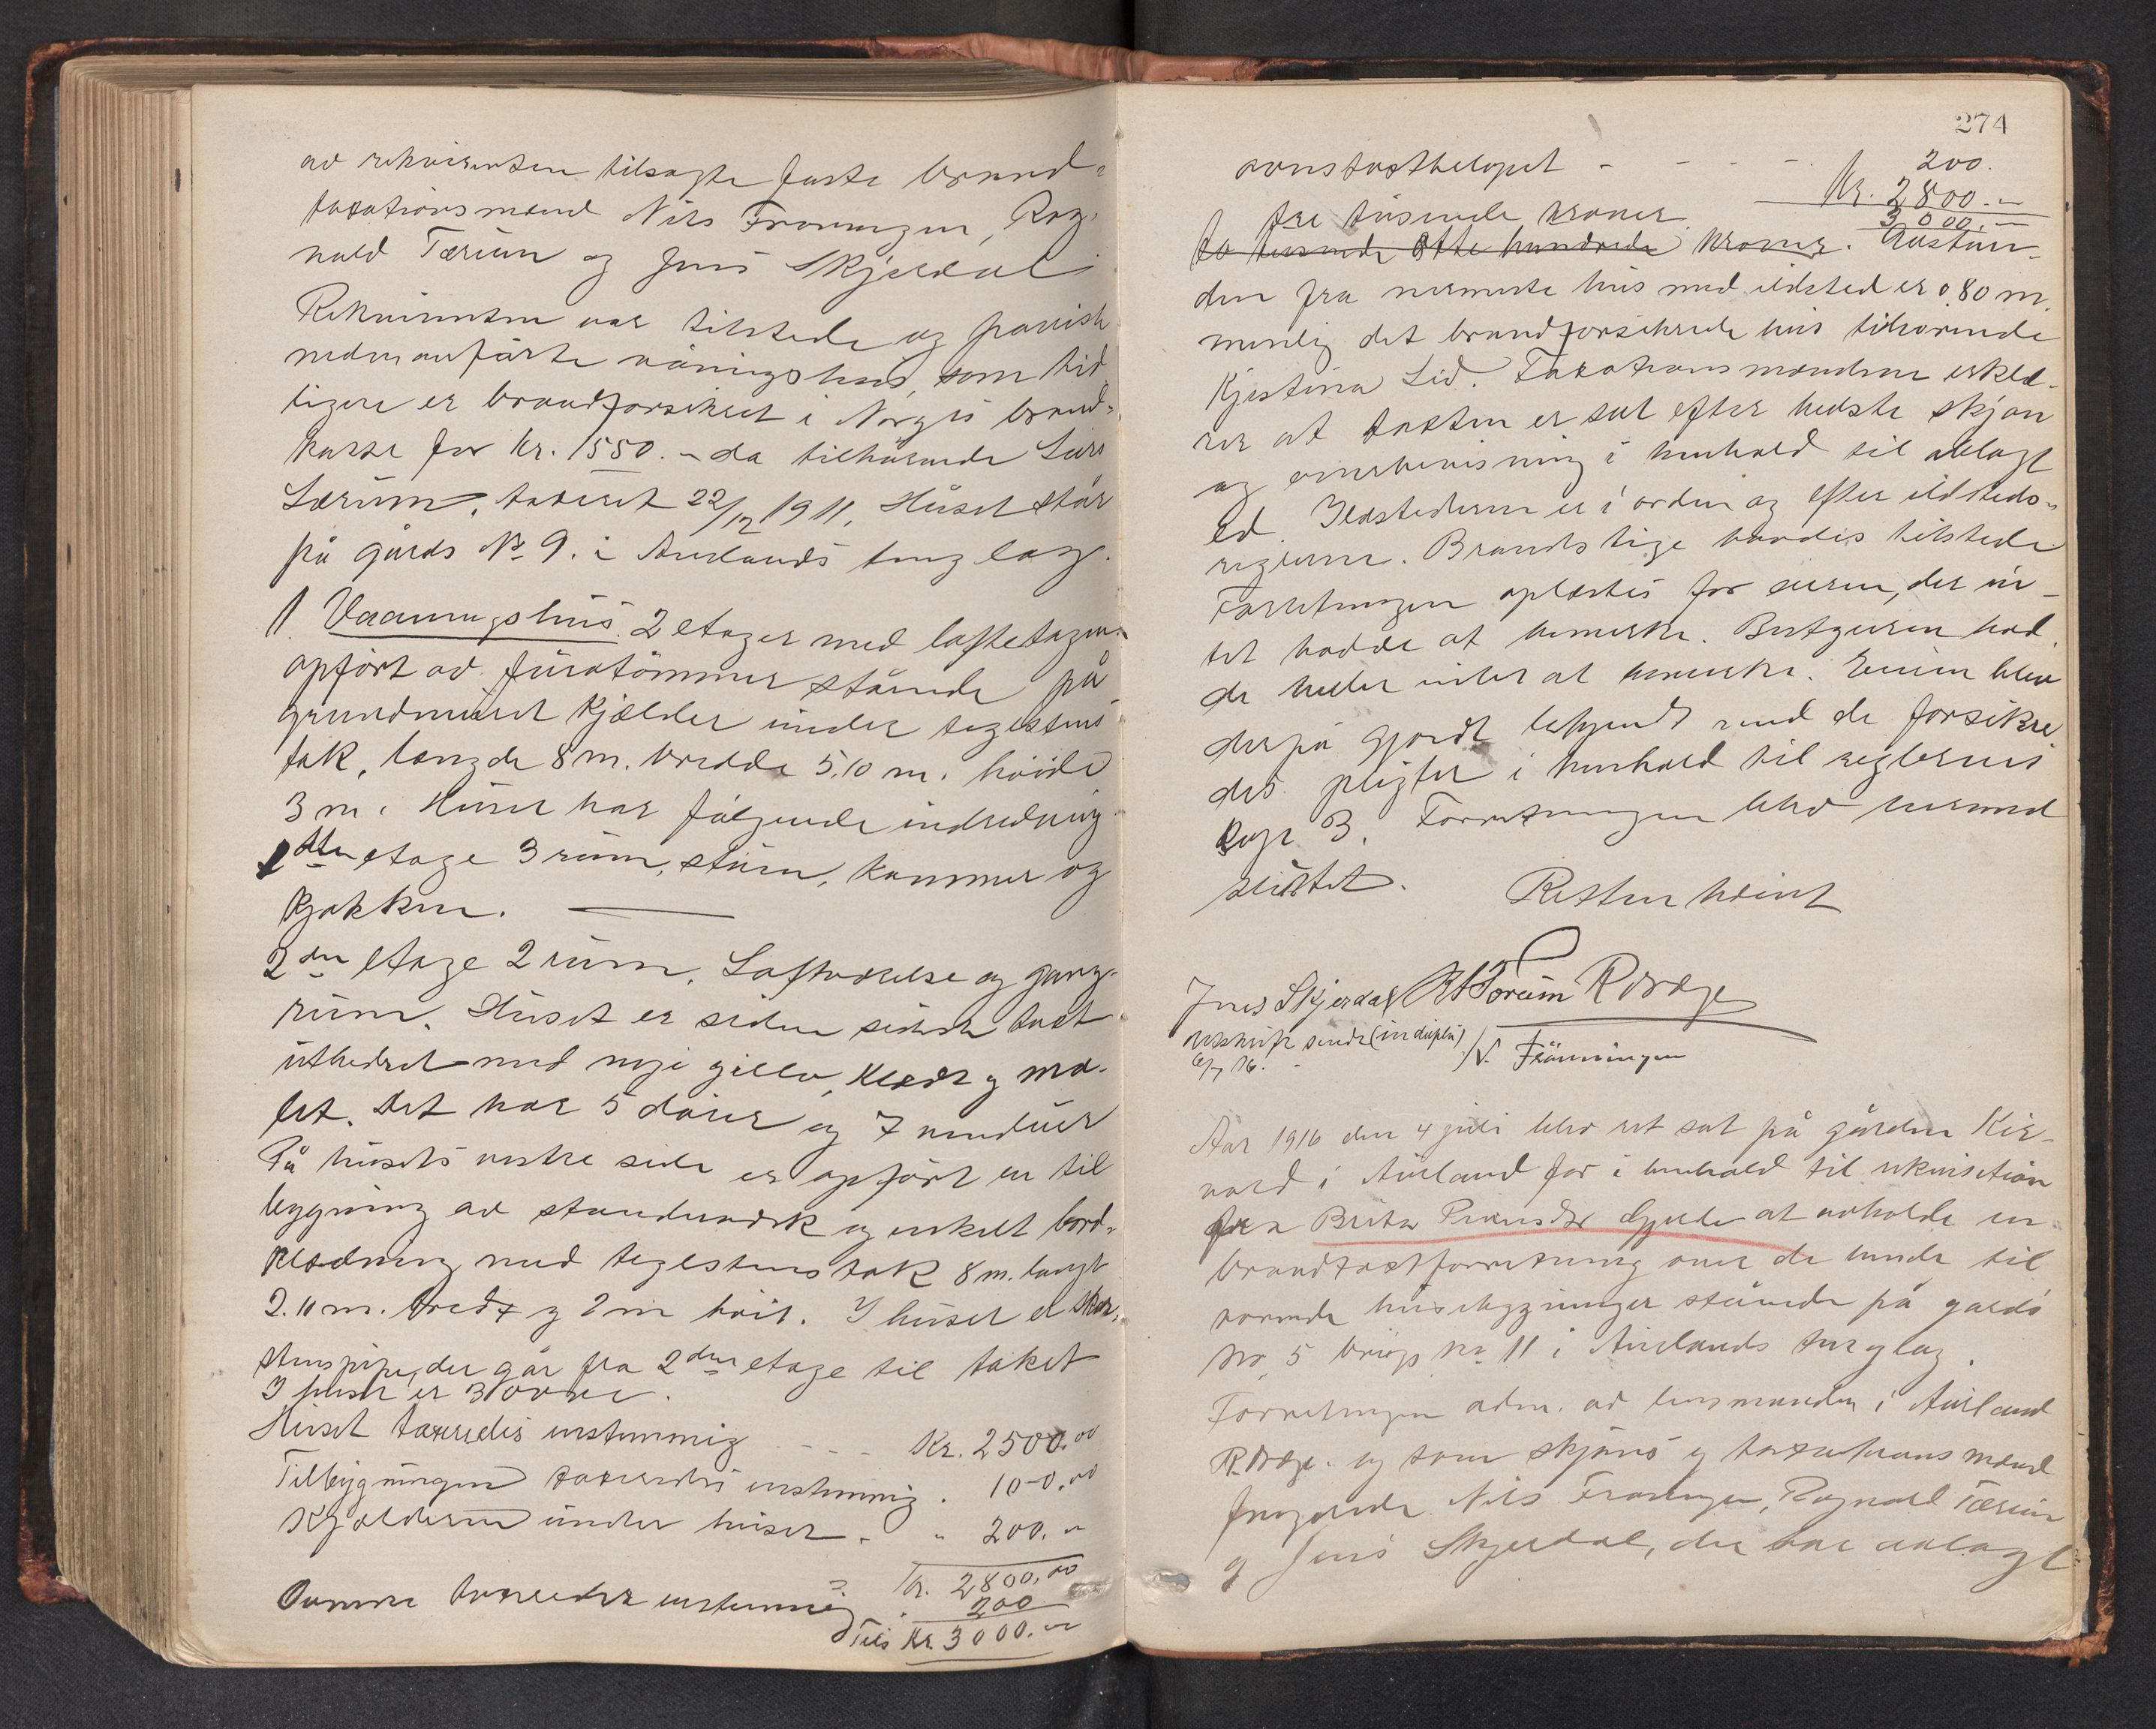 av rekvirenten tilsagte faste brand-
taxationsmænd Nils Fronningen, Rag-
nald Tærum og Jens Skjerdal
Rekvirenten var tilstede og paaviste
nedenanførte våningshus, som tid
ligere er brandforsikret i Norges brand-
kasse for kr. 1550.- da tilhørende Lars
Lærum, taxeret 22/12 1911. Huset står
på gårds No 9. i Aurlands tinglag.
1. Vaaningshus. 2 etager med loftetagen
opført av furutømmer stående på
grundmuret kjælder under teglstens
tak, længde 8 m. bredde 5.10 m. høide
3 m. Huset har følgende indredning
1ste etage 3 rum, stuen, kammer og
kjøkken.
2den etage 2 rum. Loftværelse og gang-
rum. Huset er siden sidste takst
utbedret med nye gulv, klædt og ma-
let. Det har 5 dører og 7 vinduer
På husets vestre side er opført en til
bygning av stenderverk og enkelt bord-
klædning med teglstens tak 8 m. langt
2.10 m. bredt og 2 m høit. I huset er skor-
stenspipe, der går fra 2den etage til taket
I huset er 3 ovner.
Huset taxeredes enstemmig - - - Kr. 2500.00
Tilbygningen taxeredes enstemmig . 100.00
Kjælderen under huset . " 200.-
Kr. 2800.00
Ovnene taxeredes enstemmig . 200
Tils Kr. 3000.-
274
ovnstaxtbeløpet - - - - 200.
Kr. 2800.-
tre tusende kroner 3000.-
to tusende otte hundrede kroner. Avstan-
den fra nermeste hus med ildsted er 0.80 m.
nemlig det brandforsikrede hus tilhørende
Kjestina Lid. Taxationsmændene erklæ-
rer at taxten er sat efter bedste skjøn
og overbevisning i henhold til avlagt
ed. Ildstederne er i orden og efter ildsteds-
reglerne. Brandstige havdes tilstede
Forretningen oplæstes for eieren, der in-
tet hadde at bemerke. Bestyreren had
de heller intet at bemerke. Eieren blev
derpå gjordt bekjendt med de forsikre
des pligter i henhold til reglernes
kap. 3. Forretningen blev hermed
sluttet.
Retten hævet
Jens Skjerdal R Tærum R Brøge
utskrift sendt (in duplo) N. Frønningen
6/7 16.
Aar 1916 den 4 juli blev ret sat på gården Kir-
vold i Aurland for i henhold til rekvisition
fra Brita Gjerde at avholde en
brandtaxtforretning over de hende til
hørende husebygninger stående på gards
No 5 brugs No 11 i Aurlands tinglag.
Forretningen adm. av lensmanden i Aurland
R. Brøge. og som skjøns og taxationsmænd
fungerede Nils Fronningen, Ragnald Tærum
og Jens Skjerdal, der har avlagt